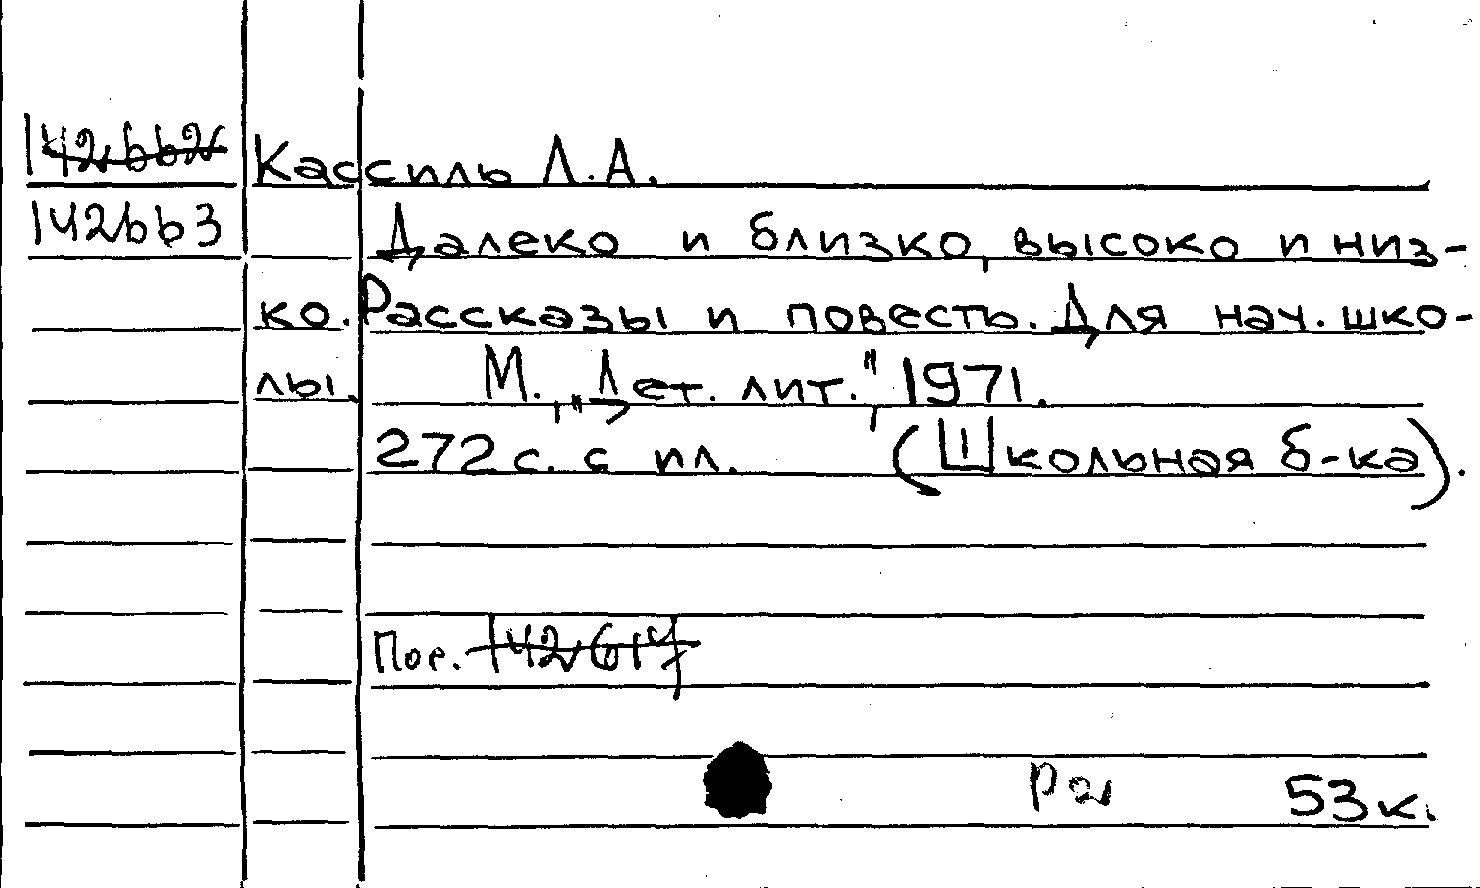 142662 Кассиль Л.А.
142663 Далеко и близко, высоко и низ-
ко. Рассказы и повесть. Для нач. шко-
лы. М., „Дет. лит.", 1971.
272 с. с ил. (Школьная б-ка).
Пос.
53 к.